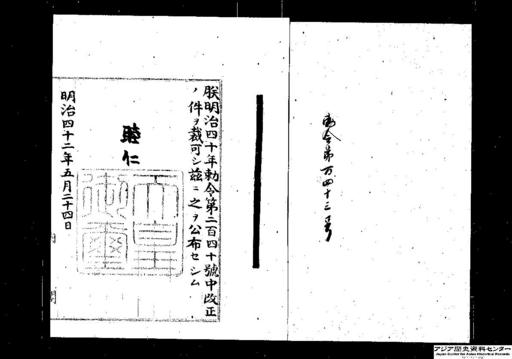 朕明治四十年勅令第二百四十號中改正
ノ件ヲ裁可シ茲ニ之ヲ公布セシム
睦仁
天皇御璽
明治四十二年五月二十四日
内閣
アジア歴史資料センター
Japan Center for Asian Historical Records